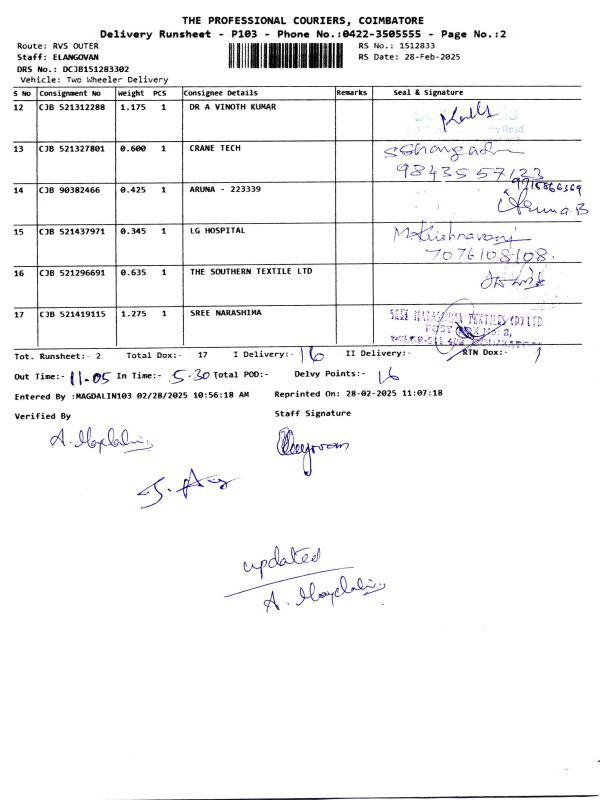 THE PROFESSIONAL COURIERS, COIMBATORE
Delivery Runsheet - P103 - Phone No.:0422-3505555 - Page No.:2
Route: RVS OUTER RS No.: 1512833
Staff: ELANGOVAN RS Date: 28-Feb-2025
DRS No.: DCJB151283302
Vehicle: Two Wheeler Delivery
S No Consignment No Weight PCS Consignee Details Remarks Seal & Signature
12 CJB 521312288 1.175 1 DR A VINOTH KUMAR
13 CJB 521327801 0.600 1 CRANE TECH
98435 57123
14 CJB 90382466 0.425 1 ARUNA - 223339
9715866369
Aruna.B
15 CJB 521437971 0.345 1 LG HOSPITAL
7076108108.
16 CJB 521296691 0.635 1 THE SOUTHERN TEXTILE LTD
17 CJB 521419115 1.275 1 SREE NARASHIMA
SREE NARASIMHA TEXTILES (P) LTD
POST BOX No: 8,
Tot. Runsheet:- 2 Total Dox:- 17 I Delivery:- 16 II Delivery:- RTN Dox:- 1
Out Time:- 11.05 In Time:- 5.30 Total POD:- Delvy Points:- 16
Entered By :MAGDALIN103 02/28/2025 10:56:18 AM Reprinted On: 28-02-2025 11:07:18
Verified By Staff Signature
A. Magdalin
updated
A. Magdalin